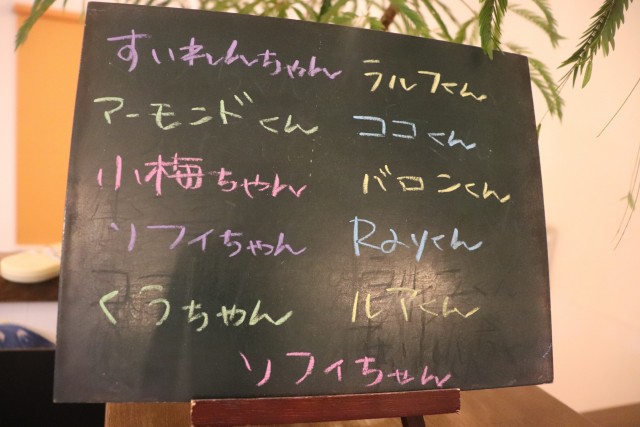 すいれんちゃん
ラルフくん
アーモンドくん
ココくん
小梅ちゃん
バロンくん
ソフィちゃん
Rayくん
くうちゃん
ルアくん
ソフィちゃん